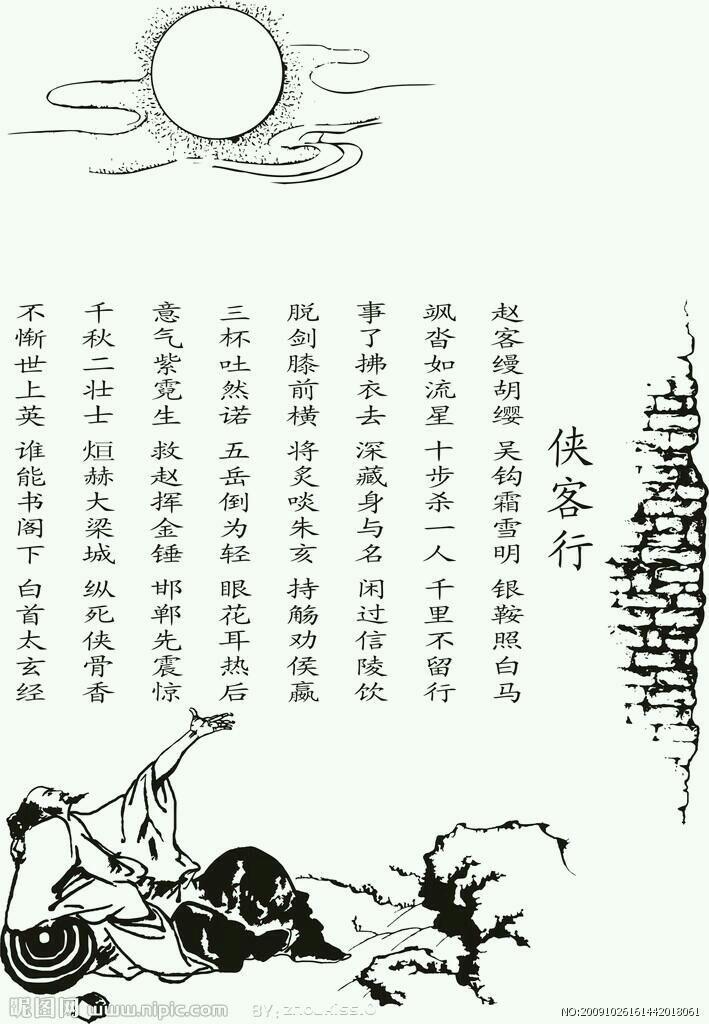 侠客行
赵客缦胡缨 吴钩霜雪明 银鞍照白马
飒沓如流星 十步杀一人 千里不留行
事了拂衣去 深藏身与名 闲过信陵饮
脱剑膝前横 将炙啖朱亥 持觞劝侯嬴
三杯吐然诺 五岳倒为轻 眼花耳热后
意气紫霓生 救赵挥金锤 邯郸先震惊
千秋二壮士 烜赫大梁城 纵死侠骨香
不惭世上英 谁能书阁下 白首太玄经
昵图网 www.nipic.com
NO:20091026161442018061